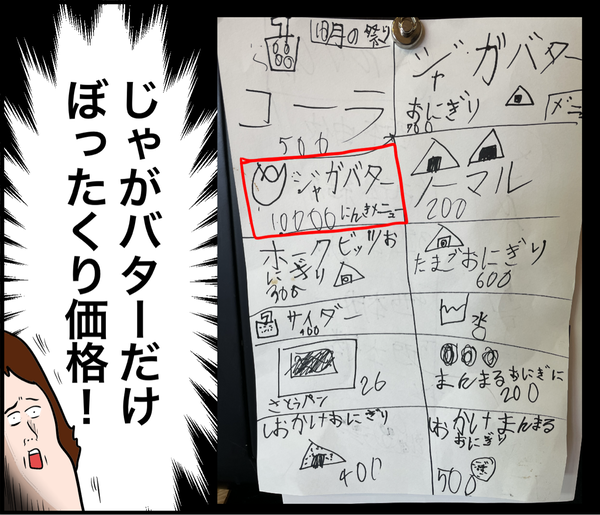 じゃがバターだけ
ぼったくり価格！
10月の祭り
コーラ
500
ジャガバター
10000 にんきメニュー
ホークビッツお
にぎり
300
サイダー
400
さとうパン
26
しおかけおにぎり
400
ジャガバター
おにぎり
メニ
ノーマル
200
たまごおにぎり
600
水
まんまるおにぎに
200
しおかけまんまる
おにぎり
500